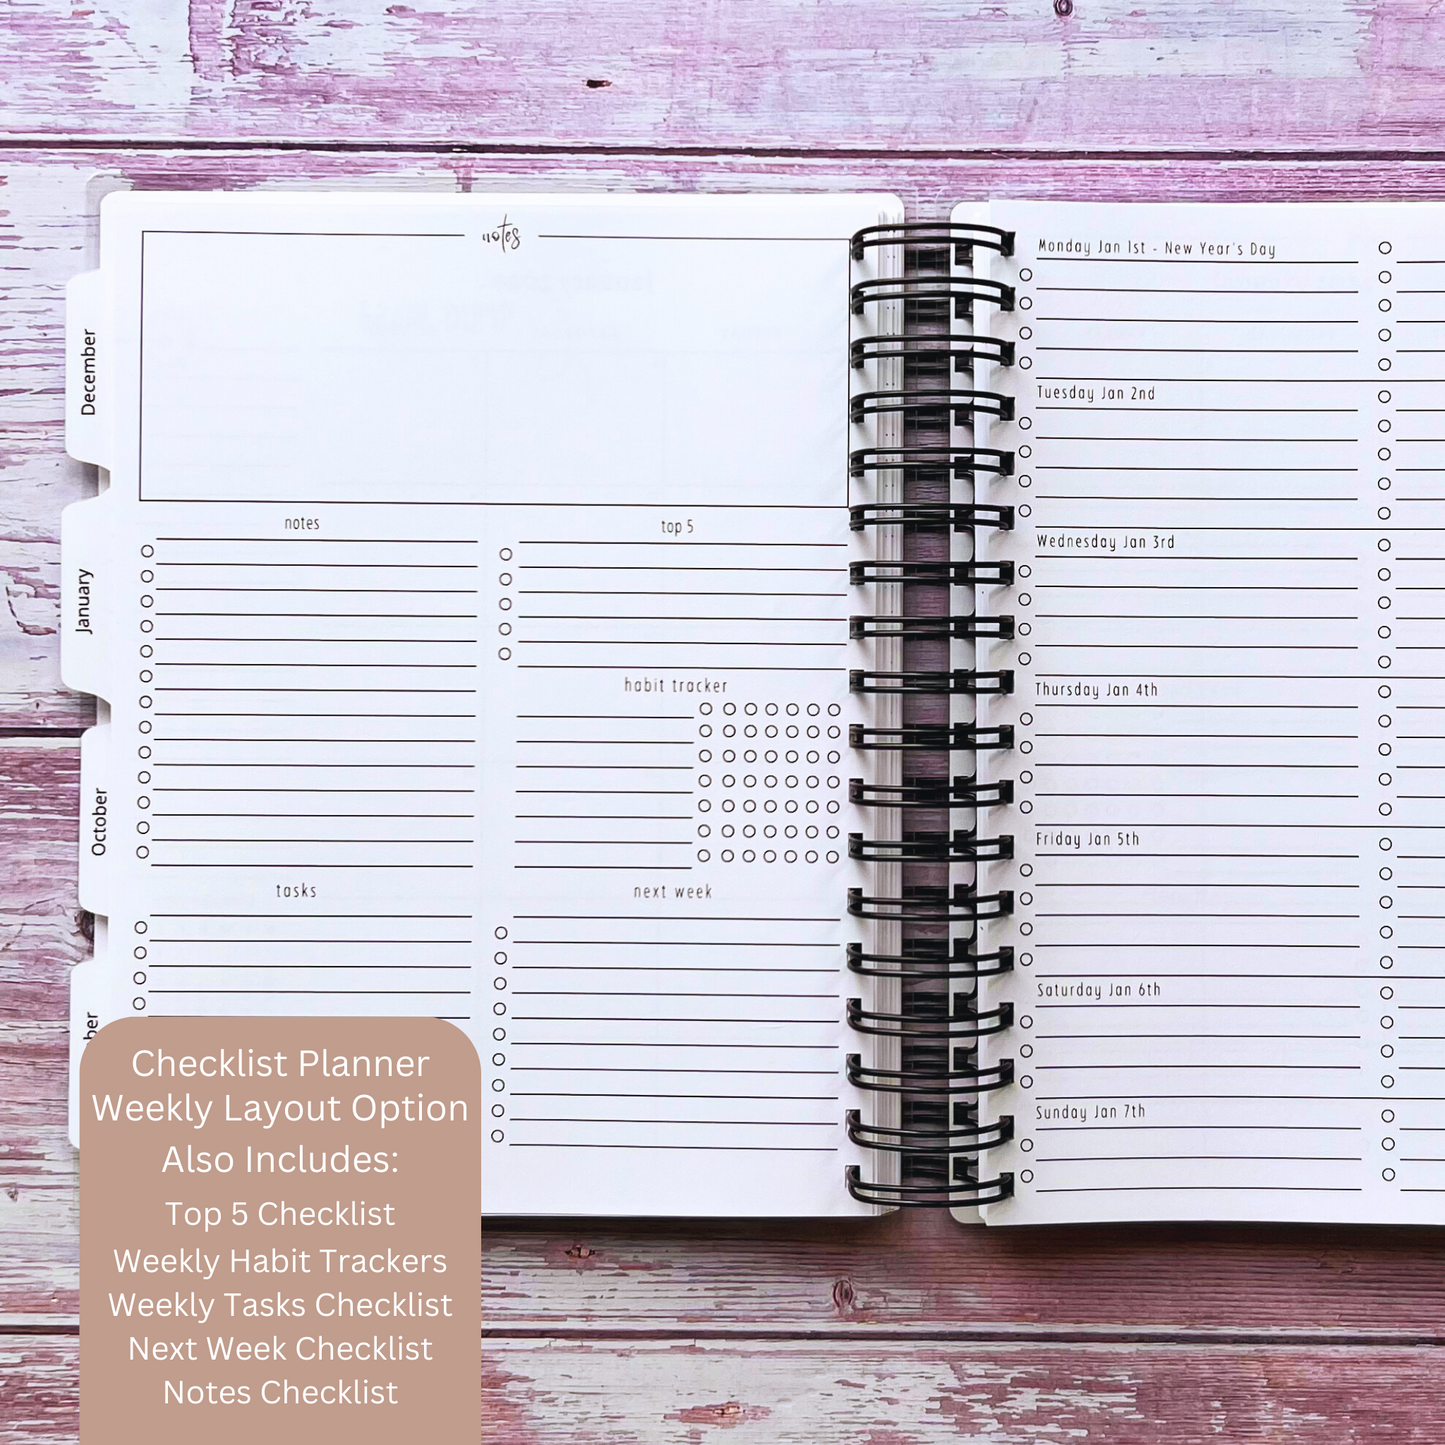 notes
December
January
October
ber
notes
top 5
habit tracker
tasks
next week
Monday Jan 1st - New Year's Day
Tuesday Jan 2nd
Wednesday Jan 3rd
Thursday Jan 4th
Friday Jan 5th
Saturday Jan 6th
Sunday Jan 7th
Checklist Planner
Weekly Layout Option
Also Includes:
Top 5 Checklist
Weekly Habit Trackers
Weekly Tasks Checklist
Next Week Checklist
Notes Checklist